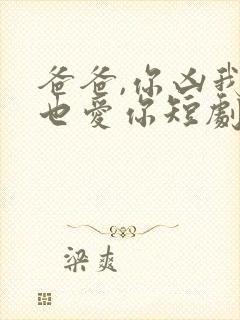 爸爸,你凶我
也愛你短劇
梁爽